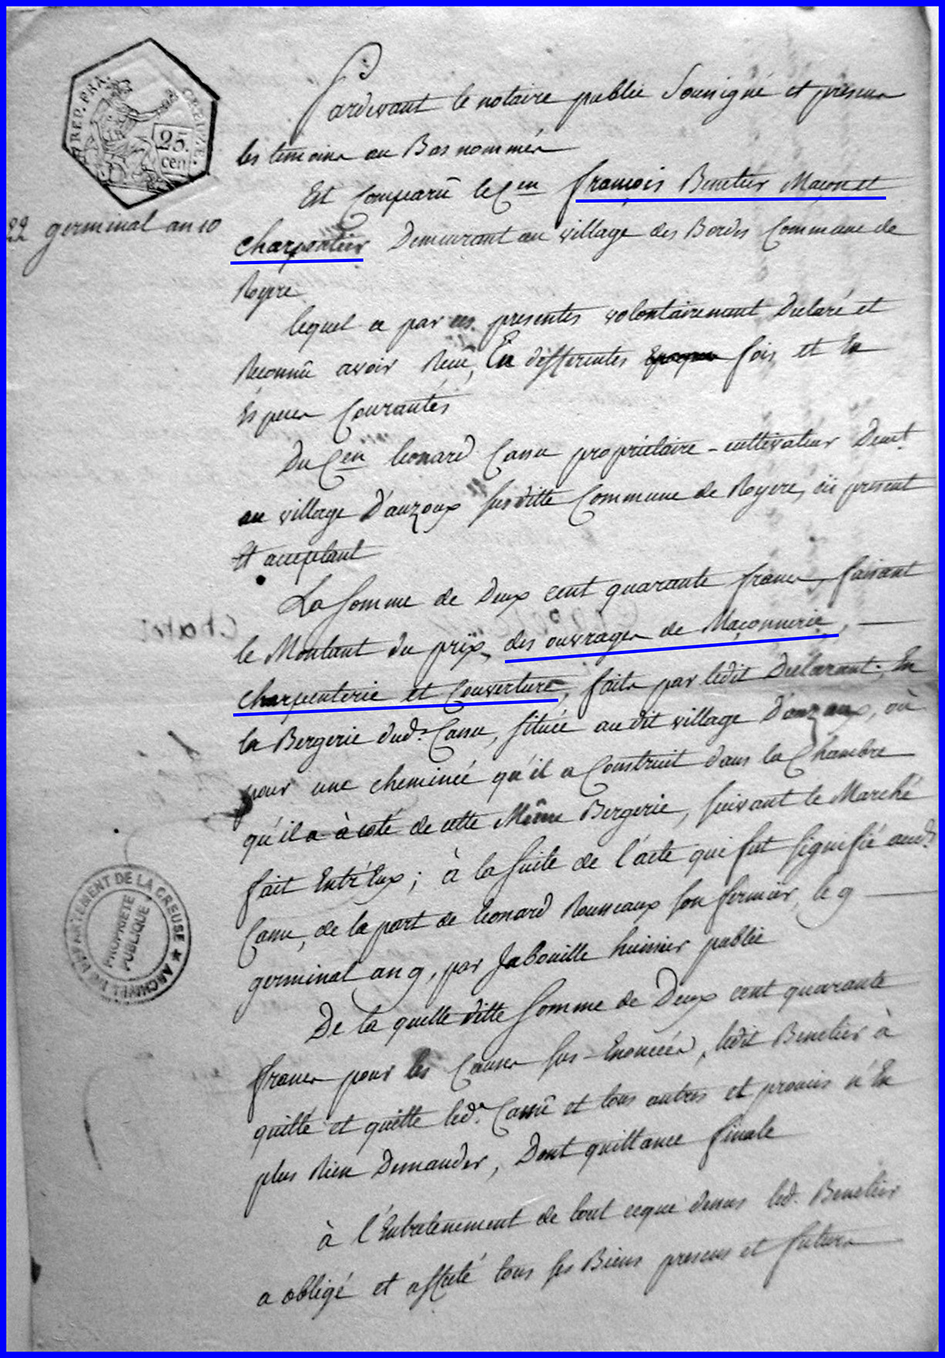 REP. FRA. CREUZE.
25.
cen
Pardevant le notaire public Soussigné et présens
les temoins au Bas nommés
22 germinal an 10
Est Comparû le Cen françois Benetier Maçon et
charpentier Demeurant au village des Bordes Commune de
Royere
lequel a par ces presentes volontairement Declaré et
Reconnû avoir Reçu, En differentes fois, et En
Especes Courantes
Du Cen leonard Cassu propriétaire-cultivateur Demt.
au village D'auzoux susditte Commune de Royere, ici present
Et acceptant
La Somme de Deux cent quarante francs, faisant
le Montant du prix, des ouvrages de Maçonnerie,
charpenterie et Couverture, faits par ledit Declarant, En
la Bergerie dud. Cassu, située audit village D'auzoux, où
pour une cheminée qu'il a Construit dans la Chambre
qu'il a à coté de cette Même Bergerie, suivant le Marché
fait Entr'Eux; à la suite de l'acte qui fut signifié aud.
Cassu, de la part de leonard Rouneaux son fermier, le 9
germinal an 9, par Jabouille huissier public
De la quelle ditte somme de Deux cent quarante
francs pour les Causes sus-Enoncées, ledit Benetier à
quitté et quitte led. Cassû et tous autres et promis n'En
plus Rien Demander, Dont quittance finale
à l'Entretenement de tout ceque dessus led. Benetier
a obligé et affecté tous ses Biens presens et futurs
ARCHIVES DU DEPARTEMENT DE LA CREUSE
PROPRIÉTÉ
PUBLIQUE